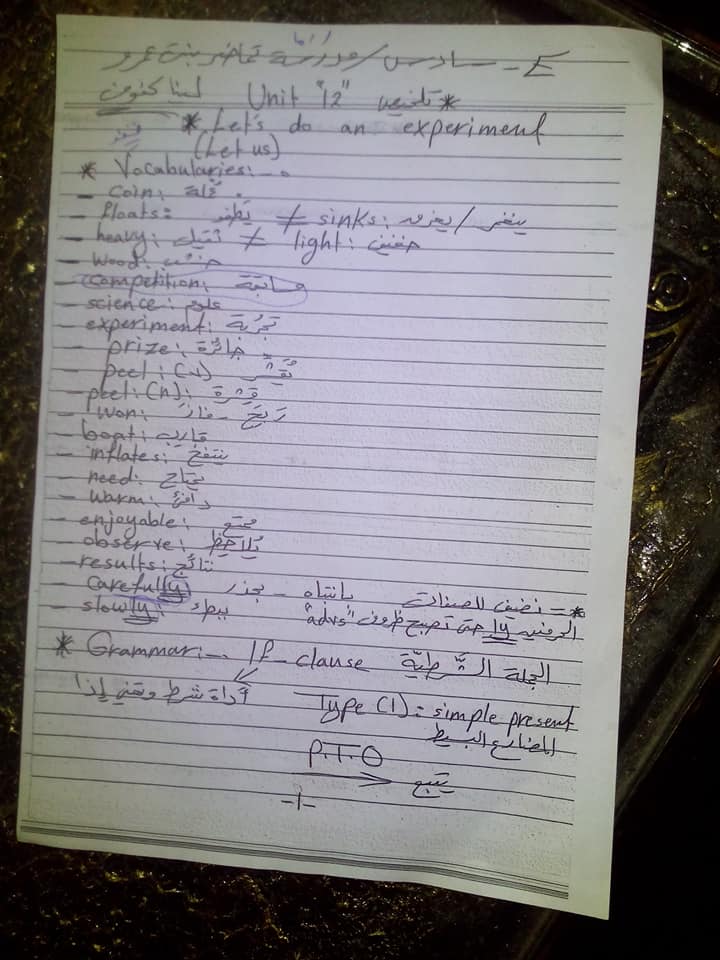 E - سادس / مدرسة تماضر بنت عمرو
* تلخيص Unit "12"
* Let's do an experiment
(Let us)
* Vocabularies:-
- Coin:
- floats: يطفو ≠ sinks: ينغمر / يغرق
- heavy: ثقيل ≠ light: خفيف
- Wood: خشب
- competition: مسابقة
- science: علوم
- experiment: تجربة
- prize: جائزة
- peel: (v) يُقشّر
- peel: (n) قشرة
- won: رَبِحَ - فازَ
- boat: قارب
- inflates: ينتفخ
- need: يحتاج
- warm: دافئ
- enjoyable: ممتع
- observe: يُلاحِظ
- results: نتائج
- Carefully بحذر - بانتباه
- slowly: ببطء
* - نضيف للصفات
الحرفين ly حتى تصبح ظروف "advs"
* Grammar:- If-clause الجملة الشّرطيّة
أداة شرط وتعني إذا
Type (1): simple present
المضارع البسيط
P.T.O
يتبع
-1-